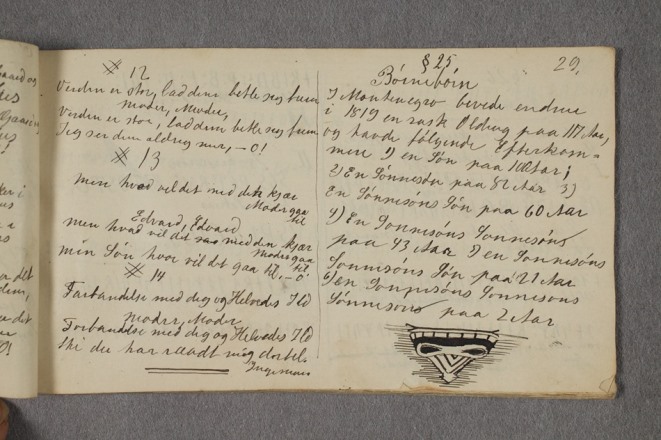 # 12
Verden er stor, lad dem betle seg frem
Moder, Moder,
Verden er stor, lad dem betle seg frem
Jeg ser dem aldreg mer, – o!
# 13
men hvad vil det med den kjær
Moder gaa
til
Edvard, Edvard
men hvad vil det med den kjær
Moder gaa
til
min Søn hvor vil det gaa til, – o
# 14
Forbandelse med dig og Helvedes Ild
Moder, Moder
Forbandelse med dig og Helvedes Ild
thi du har raadt mig dertil.
§ 25
29,
Börnebörn
I Montenegro levede endnu
i 1819 en rask Olding paa 117 Aar,
og havde følgende Efterkom=
mere 1) en Sön paa 100 Aar;
2) En Sönnesön paa 82 Aar 3)
En Sönnesöns Sön paa 60 Aar
4) En Sonnesons Sonnesöns
paa 43 Aar 5) en Sonnesöns
Sonnesöns Sön paa 21 Aar
6) en Sonnesöns Sonnesons
Sönneson paa 2 Aar